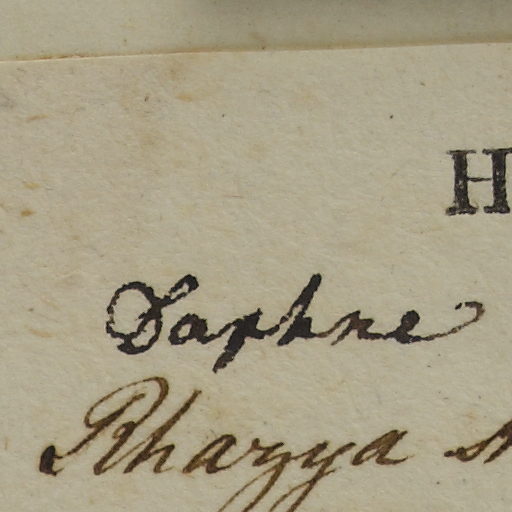 H
Daphne
Rhazya